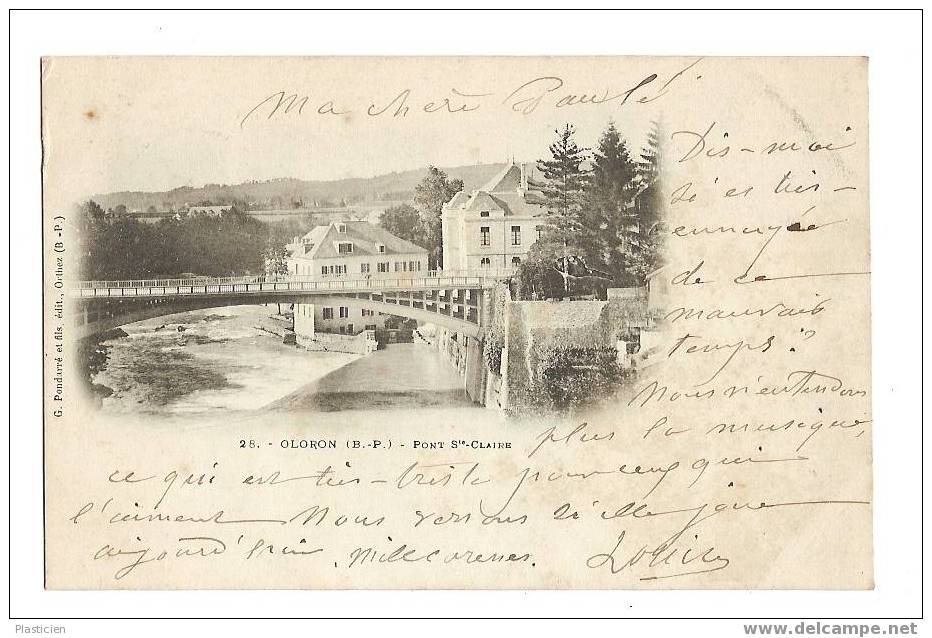 Ma chère Paule
Dis-moi
si es très-
ennuyée
de ce
mauvais
temps?
Nous n'entendons
plus la musique,
ce qui est très-triste pour ceux qui
l'aiment Nous verrons si elle joue
aujourd'hui. Mille caresses.
Louise
G. Pondarré et fils, édit., Orthez (B.-P.)
28. - OLORON (B.-P.) - PONT Ste-CLAIRE
Plasticien
www.delcampe.net